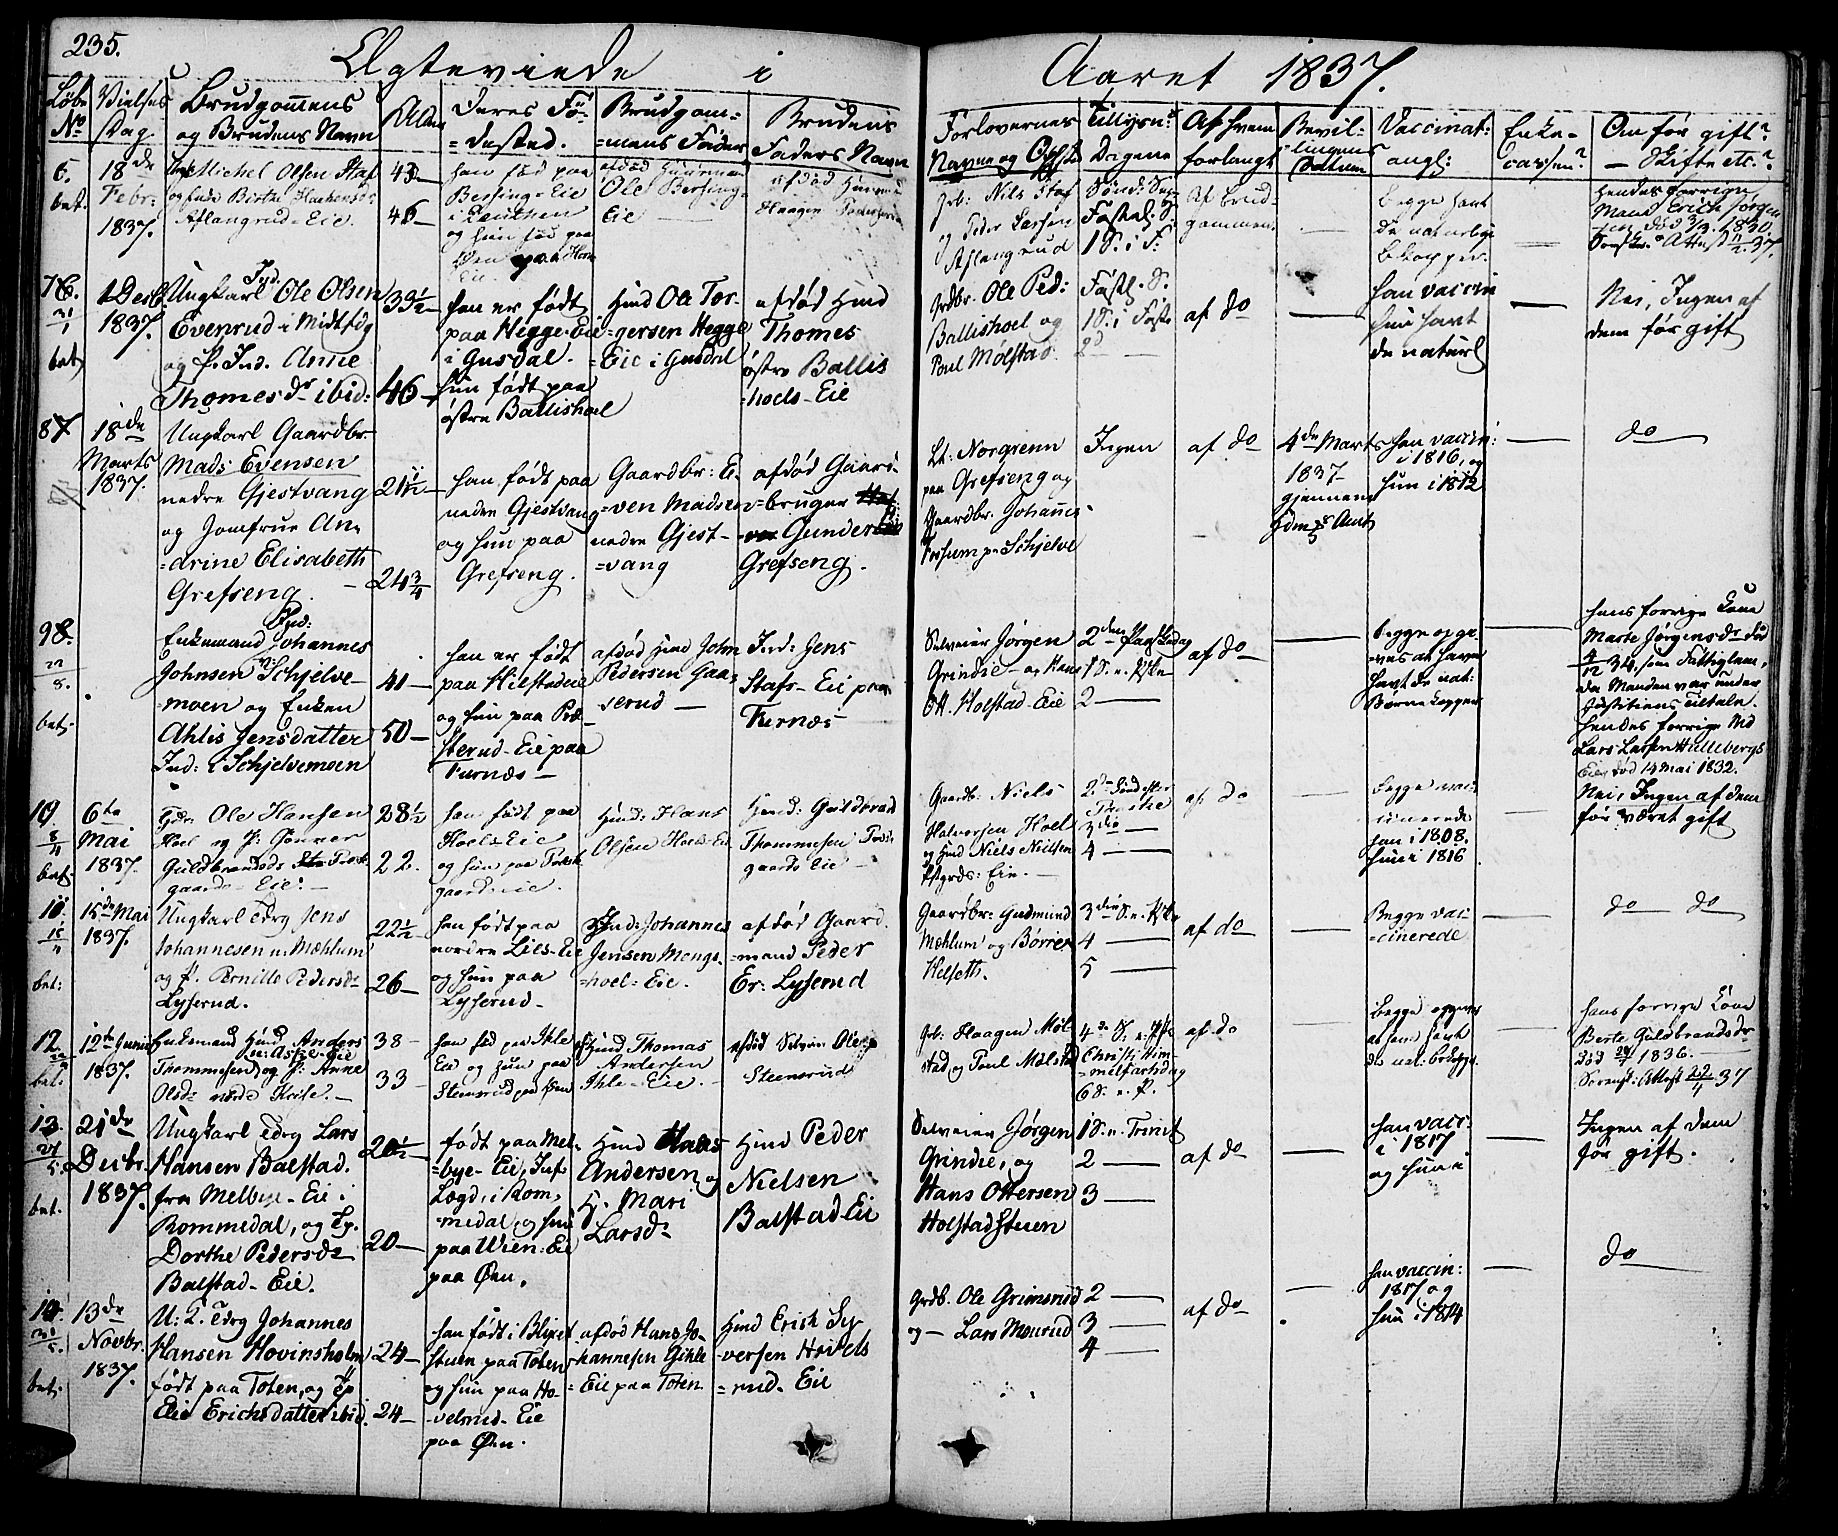 235.
Ægteviede i Aaret 1837.
Løbe No
Vielses dag.
Brudgommens og Brudens Navn
Alder
Deres Fø-
=desled.
Brudgom-
=mens Fader
Brudens
Faders Navn
Forlovernes
Navne og Opholds
Tillysn:
Dagene
Af hvem
forlangt
Bevil-
lingens
Datum
Vaccinat:
angl:
Enke-
cassen?
Om før gift?
— Skifte etc.?
6.
bet.
18de
Febr:
1837.
Michel Olsen Staf
og Birthe Haakensd:
Aflangrud-Eie.
43
46
han fød paa
Bersing-Eie
og hun fød paa
Øen
afdød
Ole Bersing-
Eie
afdød
Haagen
Grb: Nils Staf
og Peder Larsen
Aflangrud
Sønd: Sep
Fastel: S.
1 S. i F:
Af Brud-
gommen
Begge havt
de naturlige
Kopper.
hendes forrige
Mand Erich Jørgen
sen død 3/3 1830.
Attest 11/2 37.
7
31/1
bet
1 Decb.
1837.
Ungkarl Ind. Ole Olsen
Evenrud i Midtfdg
og P. Ind. Anne
Thomesdr ibid:
33½
46
han er født
paa Hegge-Eie
i Gusdal.
hun født paa
østre Ballishoel
Hmd Ole Tor-
=gersen Hegge
=Eie i Gusdal
afdød Hmd
Thomes
østre Ballis
=hoels-Eie
Grdbr. Ole Ped:
Ballishoel og
Poul Mølstad.
Fastl. S.
1 S. i Faste
2d —
af do
han vaccin
hun havt
de naturl
Nei, Ingen af
dem før gift
8
18de
Marts
1837.
Ungkarl Gaardbr.
Mads Evensen
nedre Gjestvang
og Jomfrue An-
=drine Elisabeth
Grefseng.
21 11/12
24¾
han født paa
nedre Gjestvang
og hun paa
Grefseng.
Gaardbr: E-
=ven Madsen
nedre Gjest-
=vang
afdød Gaard-
=bruger
Gunder
Grefseng.
Lt: Norgrenn
paa Grefseng og
Gaardbr. Johannes
Schjelve
Ingen
af do
4de Marts
1837
gjennem
Amt
han vaccin:
i 1816, og
hun i 1812
do
9
22/8.
bet
Enkemand Ind: Johannes
Johnsen Schjelve-
=moen og Enken
Ahlis Jensdatter
Ind: i Schjelvemoen
41
50
han er født
paa Hilstadeie
og hun paa Præ-
sterud-Eie paa
Furnæs
afdød Hmd John
Pedersen Gaa-
serud
Ind: Jens
Stafs-Eie paa
Furnæs
Selveier Jørgen
Grindie — og Hans
Ott. Holstad-Eie
2den Paaskedag
1 S. e. Pske
2 —
af do
begge opgi-
=ves at have
havt de nat:
Børnekopper
hans forrige Kone
Marte Jørgensdr død
4/12 34, som Fattiglem,
da Manden var under
Justitiens Tiltale.
hendes forrige Md
Lars Larsen Hullebergs
Eie, død 14 Mai 1832.
10
8/4
bet.
6te
Mai
1837.
Ole Hansen
Hoel og P: Gunner
Guldbrandsds Præst-
gaards-Eie.
28½
22.
han født paa
Hoels Eie
og hun paa Præst
gaardseie.
Hmd: Hans
Olsen Hoels-Eie
Hmd: Guldbrand
Thommesen Præst-
gaards Eie
Gaardb: Niels
Halversen Hoel
og Hmd Niels Nielsen
Pstgrds: Eie.
3die —
4 —
af do
Begge vac-
cinerede
han i 1808.
hun i 1816
Nei, Ingen af dem
før været gift
11.
bet:
15de Mai
1837.
Ungkarl Tdrg Jens
Johannesen n: Mæhlum
og P. Pernille Pedersdr
Lyserud.
22½
26
han født paa
nordre Lies-Eie
og hun paa
Lyserud
Ind: Johannes
Jensen Mengs-
=hoel-Eie.
afdød Gaard-
=mand Peder
Er: Lyserud
Gaardbr: Gudmund
Mæhlum og Børrer
Helseth.
3die S. e. Pske
4 —
5 —
af do
Begge vac-
=cinerede
do do
12
bet:
12te Junii
1837.
Enkemand Hmd Anders
Thommesen og P: Anne
Olsdr
38
33
han fød paa Ihle
Eie og hun paa
Steensrud paa Øen
Hmd: Thomas
Andersen
Ihle-Eie.
afdød Selveier Ole
Steensrud
Gb: Haagen Møl
stad og Poul Mølstad
4de S. e. Pske
Christi Him-
=melfartsdag
6 S. e. P.
af do
Begge opgives
at have havt
de nat: Kopper
hans forrige Kone
Berte Guldbrandsdr
død 1836.
Attest 22/1 37
13.
27/5.
bet.
21de
Decbr.
1837.
Ungkarl Tdrg Lars
Hansen Balstad.
fra Melbye-Eie i
Rommedal, og Tp.
Dorthe Pedersdr
Balstad-Eie.
20½
20
født paa Mel-
=bye-Eie, Inf.
Lægd, i Rom-
=medal, og hun
paa Wien-Eie
paa Øen.
Hmd Hans
Andersen og
H. Mari
Larsdr
Hmd Peder
Nielsen
Balstad Eie
Selveier Jørgen
Grindie, og
Hans Ottersen
Holstadstuen
1 S. e. Trinit
2 —
3 —
af do
han vacc:
i 1817
og hun i
Ingen af dem
før gift.
14.
31/5.
bet.
13de
Novbr.
1837.
U: K. Tdrg Johannes
Hansen Hovinsholm
født paa Toten, og Tp
Elie Erichsdatter ibid.
24
24
han født i Blixet
stuen paa Toten
og hun paa Ho-
=velsrud-Eie
paa Øen.
afdød Hans Jo-
hannesen Gihle
=Eie paa Toten
Hmd Erich Sy
=versen Hovels
=rud-Eie
Grdb. Ole Grimsrud
og — Lars Mourud
2 —
3 —
4 —
af do
han vaccin:
1817 og
hun i 1814
do